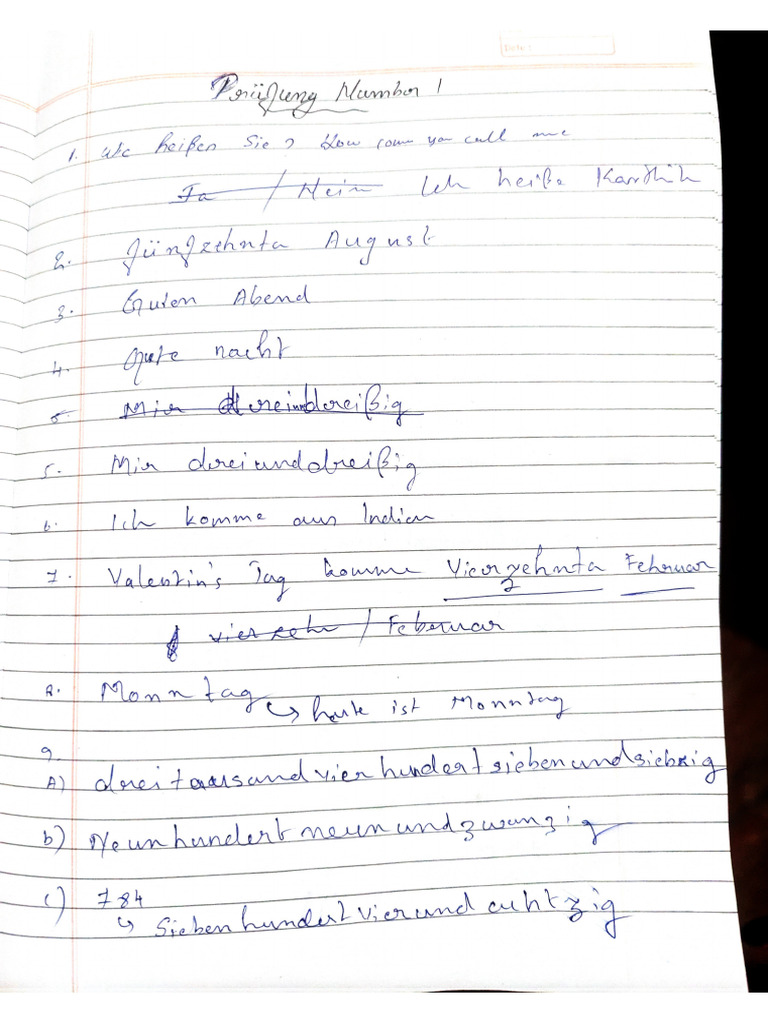 Date :
Prüfung Number 1
1. Wie heißen Sie? How can you call me
Ja / Nein Ich heiße Karthik
2. fünfzehnta August
3. Guten Abend
4. Gute nacht
5. Mir dreiunddreißig
5. Mir dreiunddreißig
6. Ich komme aus Indien
7. Valentin's Tag komme Vierzehnta Februar
vierzehn / Februar
8. Monntag ↪ heute ist Monntag
9.
A) dreitausandvierhundertsiebenundsiebzig
b) Neunhundertneunundzwanzig
c) 784
↪ Siebenhundertvierundachtzig